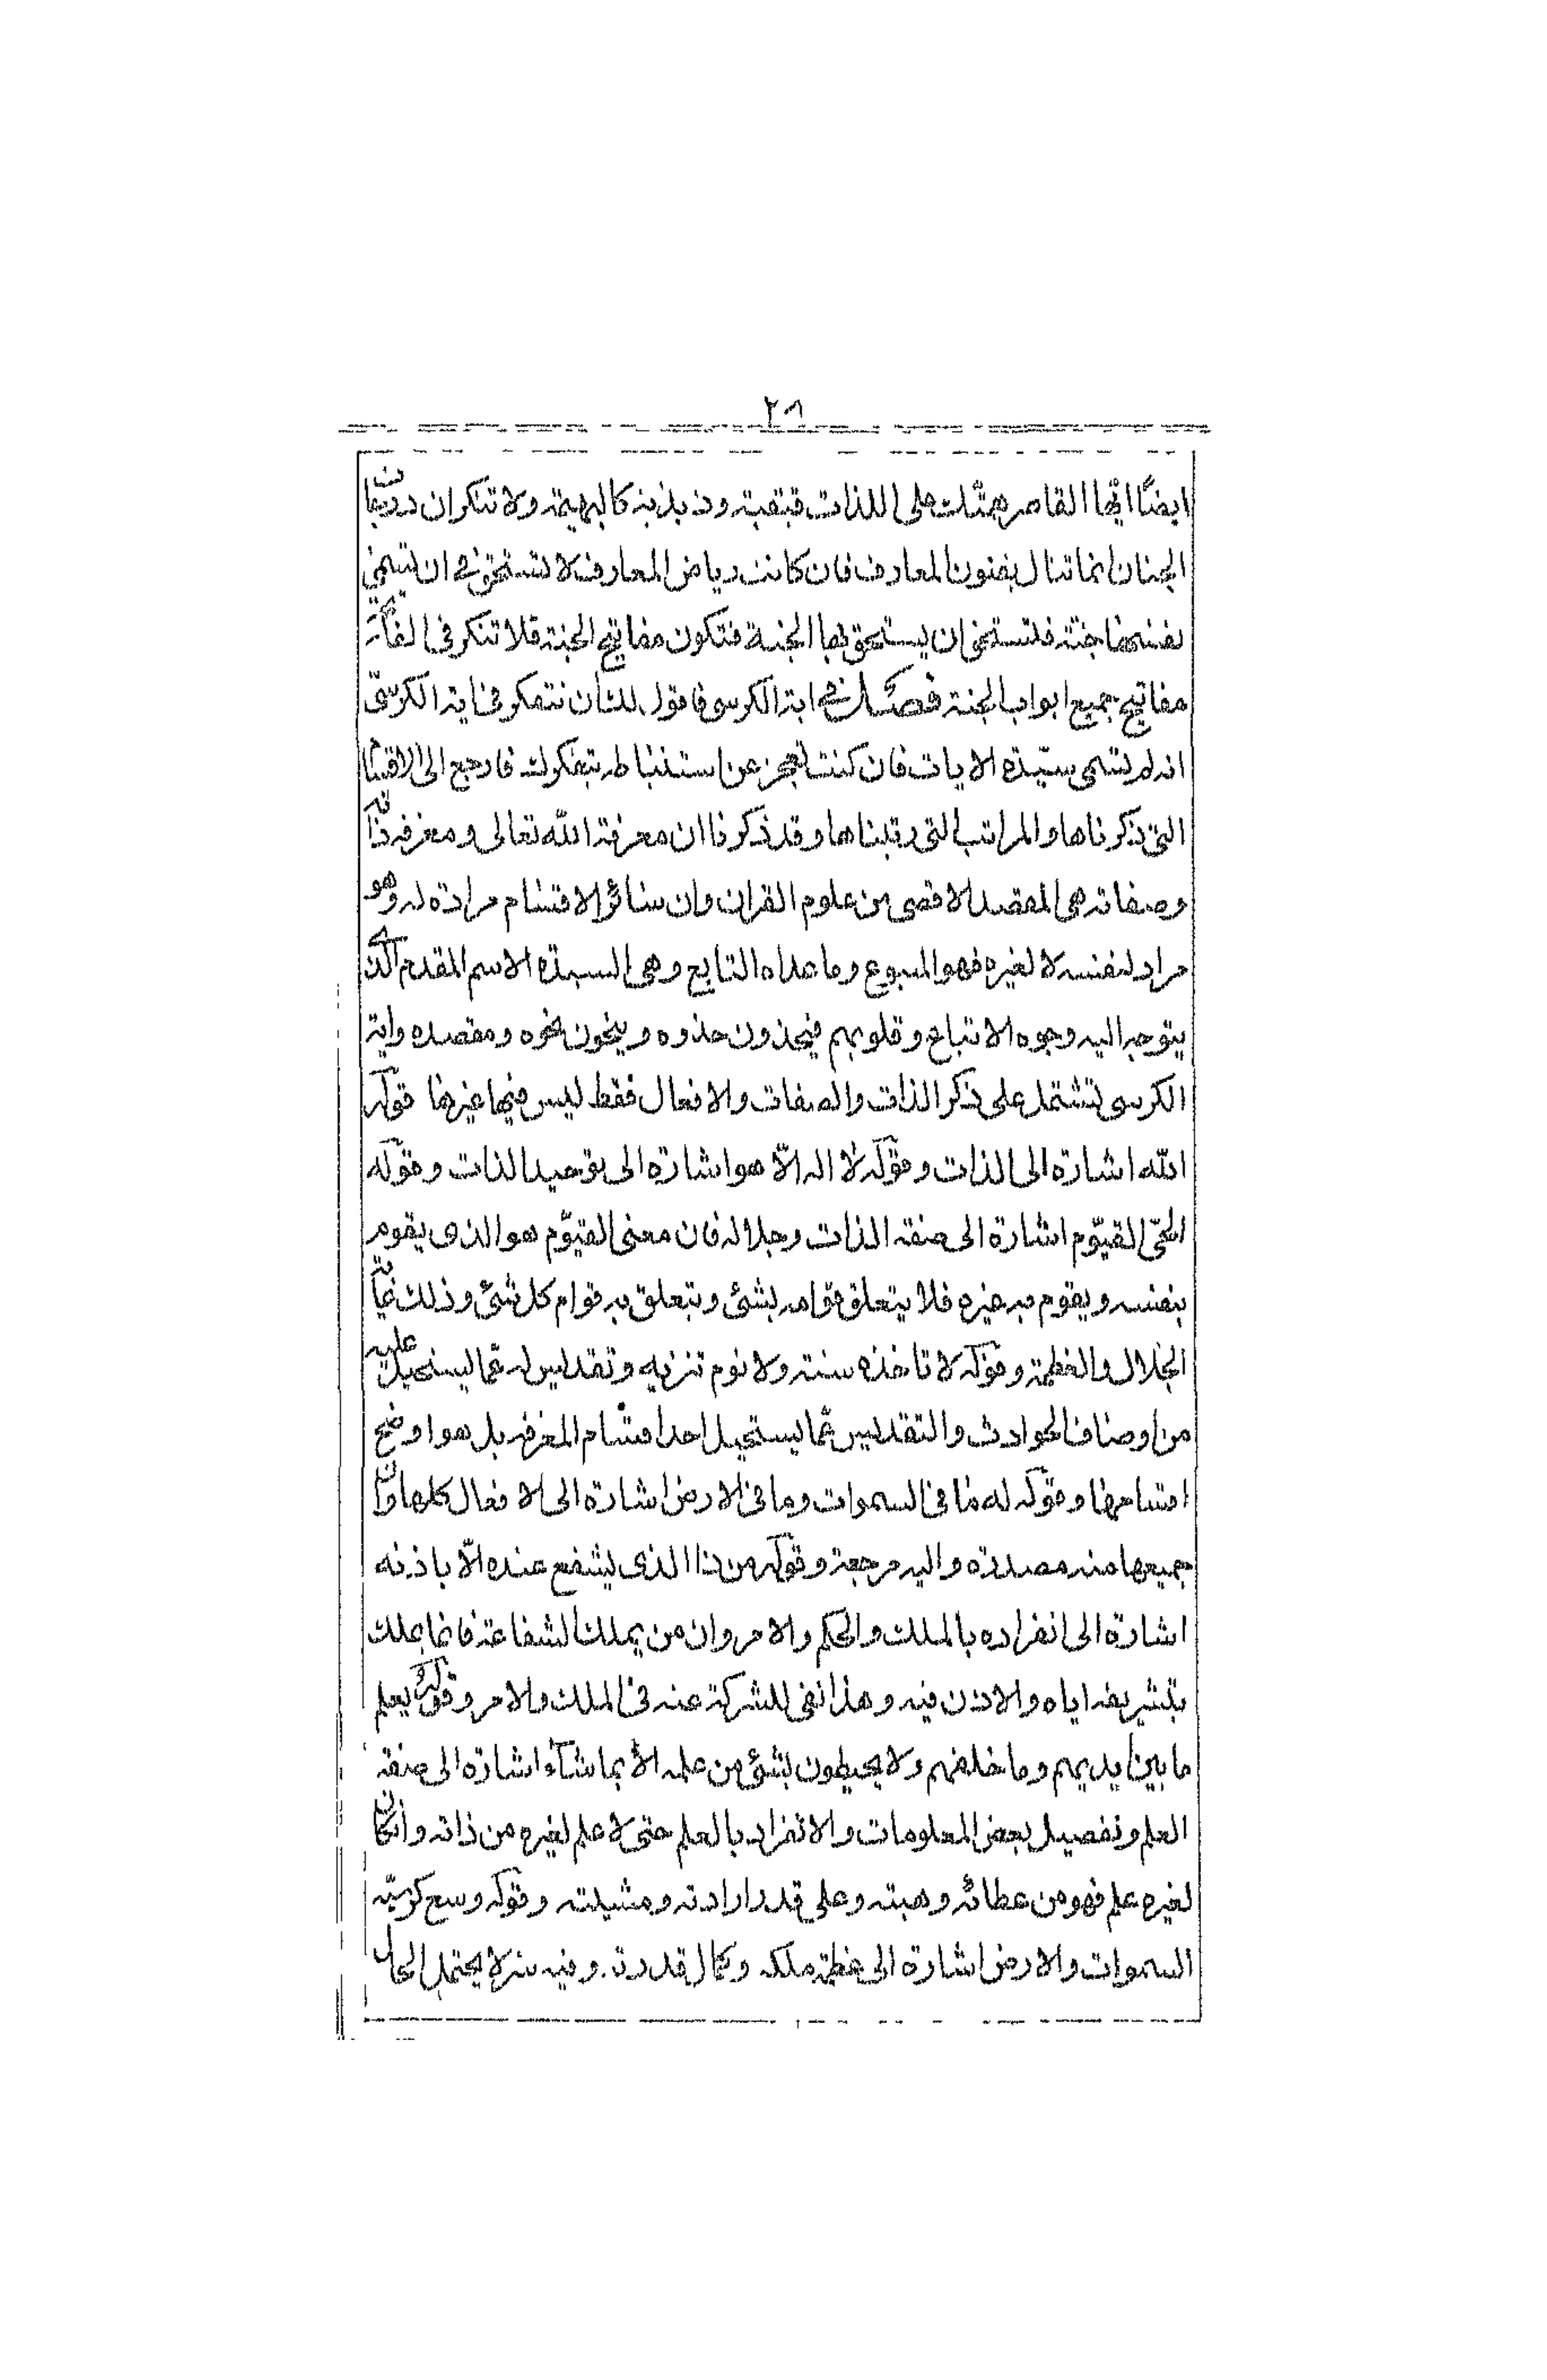 ٢٨
ايضًا ايّها القاصر همّتك على اللذات قبقبة وذبذبة كالبهيمة ولا تنكر ان درجات
الجنان انما تنال بفنون المعارف فان كانت رياض المعارف لا تستحق في ان تسمى
نفسها جنّة فلتستحق ان يستحق بها الجنة فتكون مفاتيح الجنة فلا تنكر في الفاتحة
مفاتيح جميع ابواب الجنة فصل في اية الكرسى فاقول لك ان تتفكر في اية الكرسّى
انه لم تسمى سيّدة الايات فان كنت تعجز عن استنباطه بتفكرك فارجع الى الاقسام
التى ذكرناها والمراتب التى رتبناها وقد ذكرنا ان معرفة الله تعالى ومعرفة ذاته
وصفاته هى المقصد الاقصى من علوم القران وان سائر الاقسام مرادة له وهو
مراد لنفسه لا لغيره فهو المتبوع وما عداه التابع وهى السيدة الاسم المقدم الذى
يتوجه اليه وجوه الاتباع وقلوبهم فيحذون حذوه وينحون نحوه ومقصده واية
الكرسى تشتمل على ذكر الذات والصفات والافعال فقط ليس فيها غيرها قوله
الله اشارة الى الذات وقوله لا اله الّا هو اشارة الى توحيد الذات وقوله
الحىّ القيّوم اشارة الى صفة الذات وجلاله فان معنى القيّوم هو الذى يقوم
بنفسه ويقوم به غيره فلا يتعلق قوامه بشئ ويتعلق به قوام كل شئ وذلك غاية
الجلال والعظمة وقوله لا تاخذه سنة ولا نوم تنزيه وتقديس له عمّا يستحيل عليه
من اوصاف الحوادث والتقديس عمّا يستحيل احد اقسام المعرفة بل هو اوضح
اقسامها وقوله له ما في السموات وما في الارض اشارة الى الافعال كلها وان
جميعها منه مصدره واليه مرجعة وقوله من ذا الذى يشفع عنده الّا باذنه
اشارة الى انفراده بالملك والحكم والامر وان من يملك الشفاعة فانما يملك
بتشريفه اياه والاذن فيه وهذا نفى للشركة عنه في الملك والامر وقوله يعلم
ما بين ايديهم وما خلفهم ولا يحيطون بشئ من علمه الّا بما شآء اشارة الى صفة
العلم وتفصيل بعض المعلومات والانفراد بالعلم حتى لا علم لغيره من ذاته وان كان
لغيره علم فهو من عطائه وهبته وعلى قدر ارادته ومشيته وقوله وسع كرسيّه
السموات والارض اشارة الى عظمة ملكه وكمال قدرته وفيه سر لا يحتمل الحال